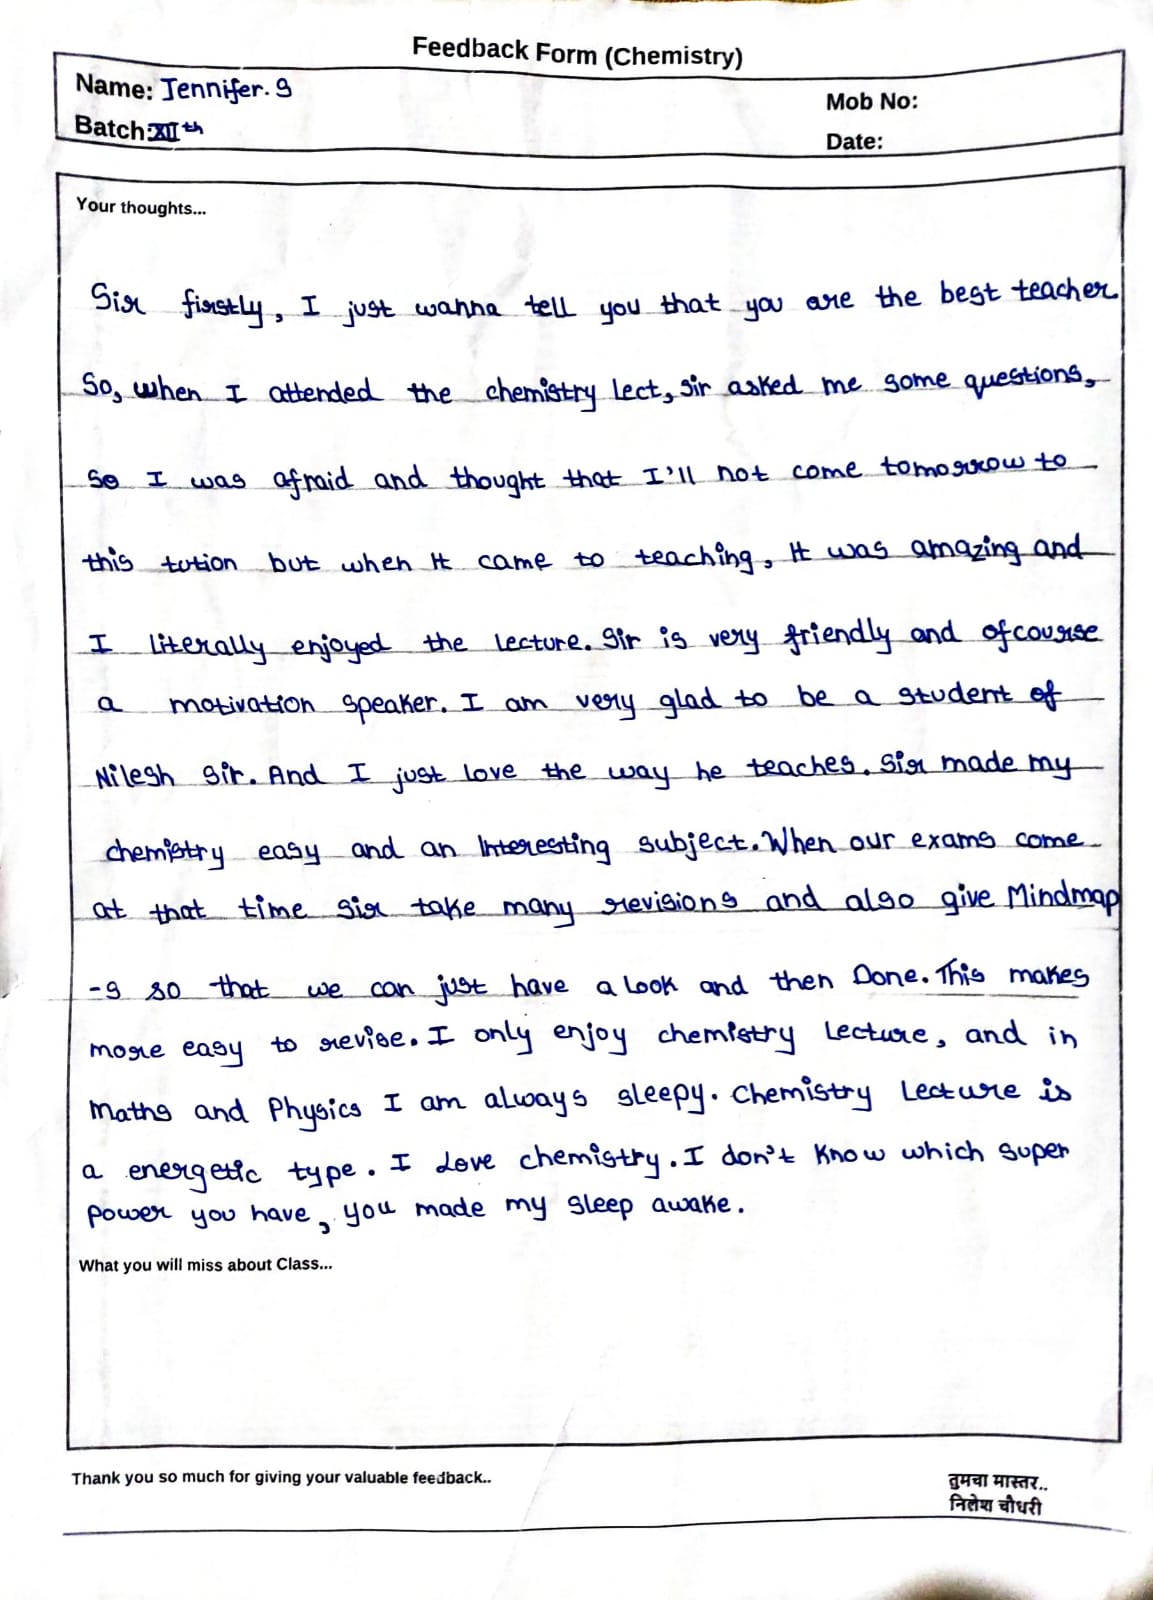 Feedback Form (Chemistry)
Name: Jennifer. S
Mob No:
Batch: XIIth
Date:
Your thoughts...
Sir firstly, I just wanna tell you that you are the best teacher.
So, when I attended the chemistry lect, sir asked me some questions,
So I was afraid and thought that I'll not come tomorrow to
this tution but when it came to teaching, it was amazing and
I literally enjoyed the lecture. Sir is very friendly and ofcourse
a motivation speaker. I am very glad to be a student of
Nilesh Sir. And I just love the way he teaches. Sir made my
chemistry easy and an Interesting subject. When our exams come
at that time sir take many revisions and also give Mindmap
-s so that we can just have a look and then Done. This makes
more easy to revise. I only enjoy chemistry lecture, and in
Maths and Physics I am always sleepy. Chemistry Lecture is
a energetic type. I Love chemistry. I don't know which super
power you have, you made my sleep awake.
What you will miss about Class...
Thank you so much for giving your valuable feedback..
तुमचा मास्तर..
निलेश चौधरी